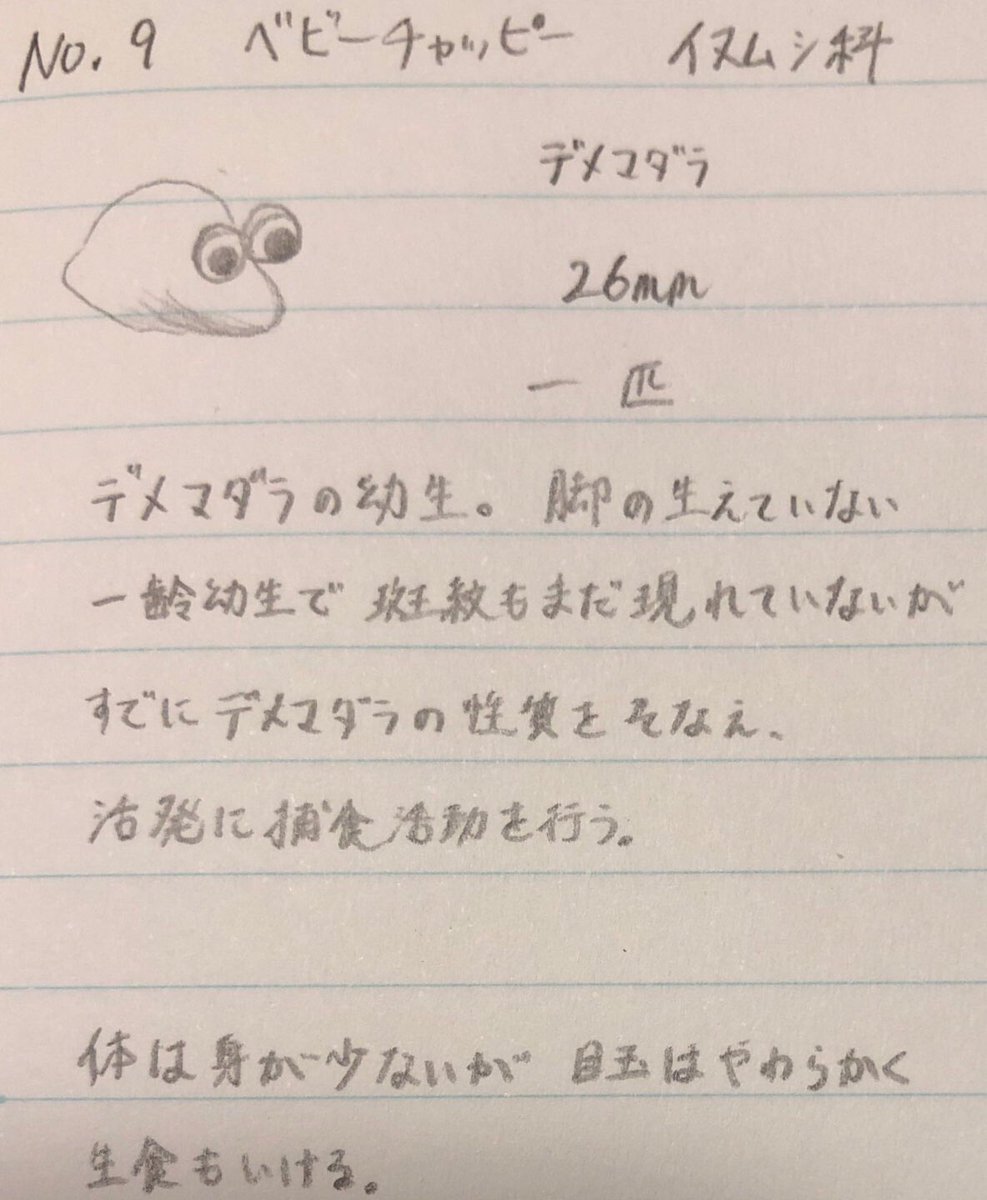 No. 9 ベビーチャッピー イヌムシ科
デメマダラ
26mm
一匹
デメマダラの幼生。脚の生えていない
一齢幼生で斑紋もまだ現れていないが
すでにデメマダラの性質をそなえ、
活発に捕食活動を行う。
体は身が少ないが目玉はやわらかく
生食もいける。